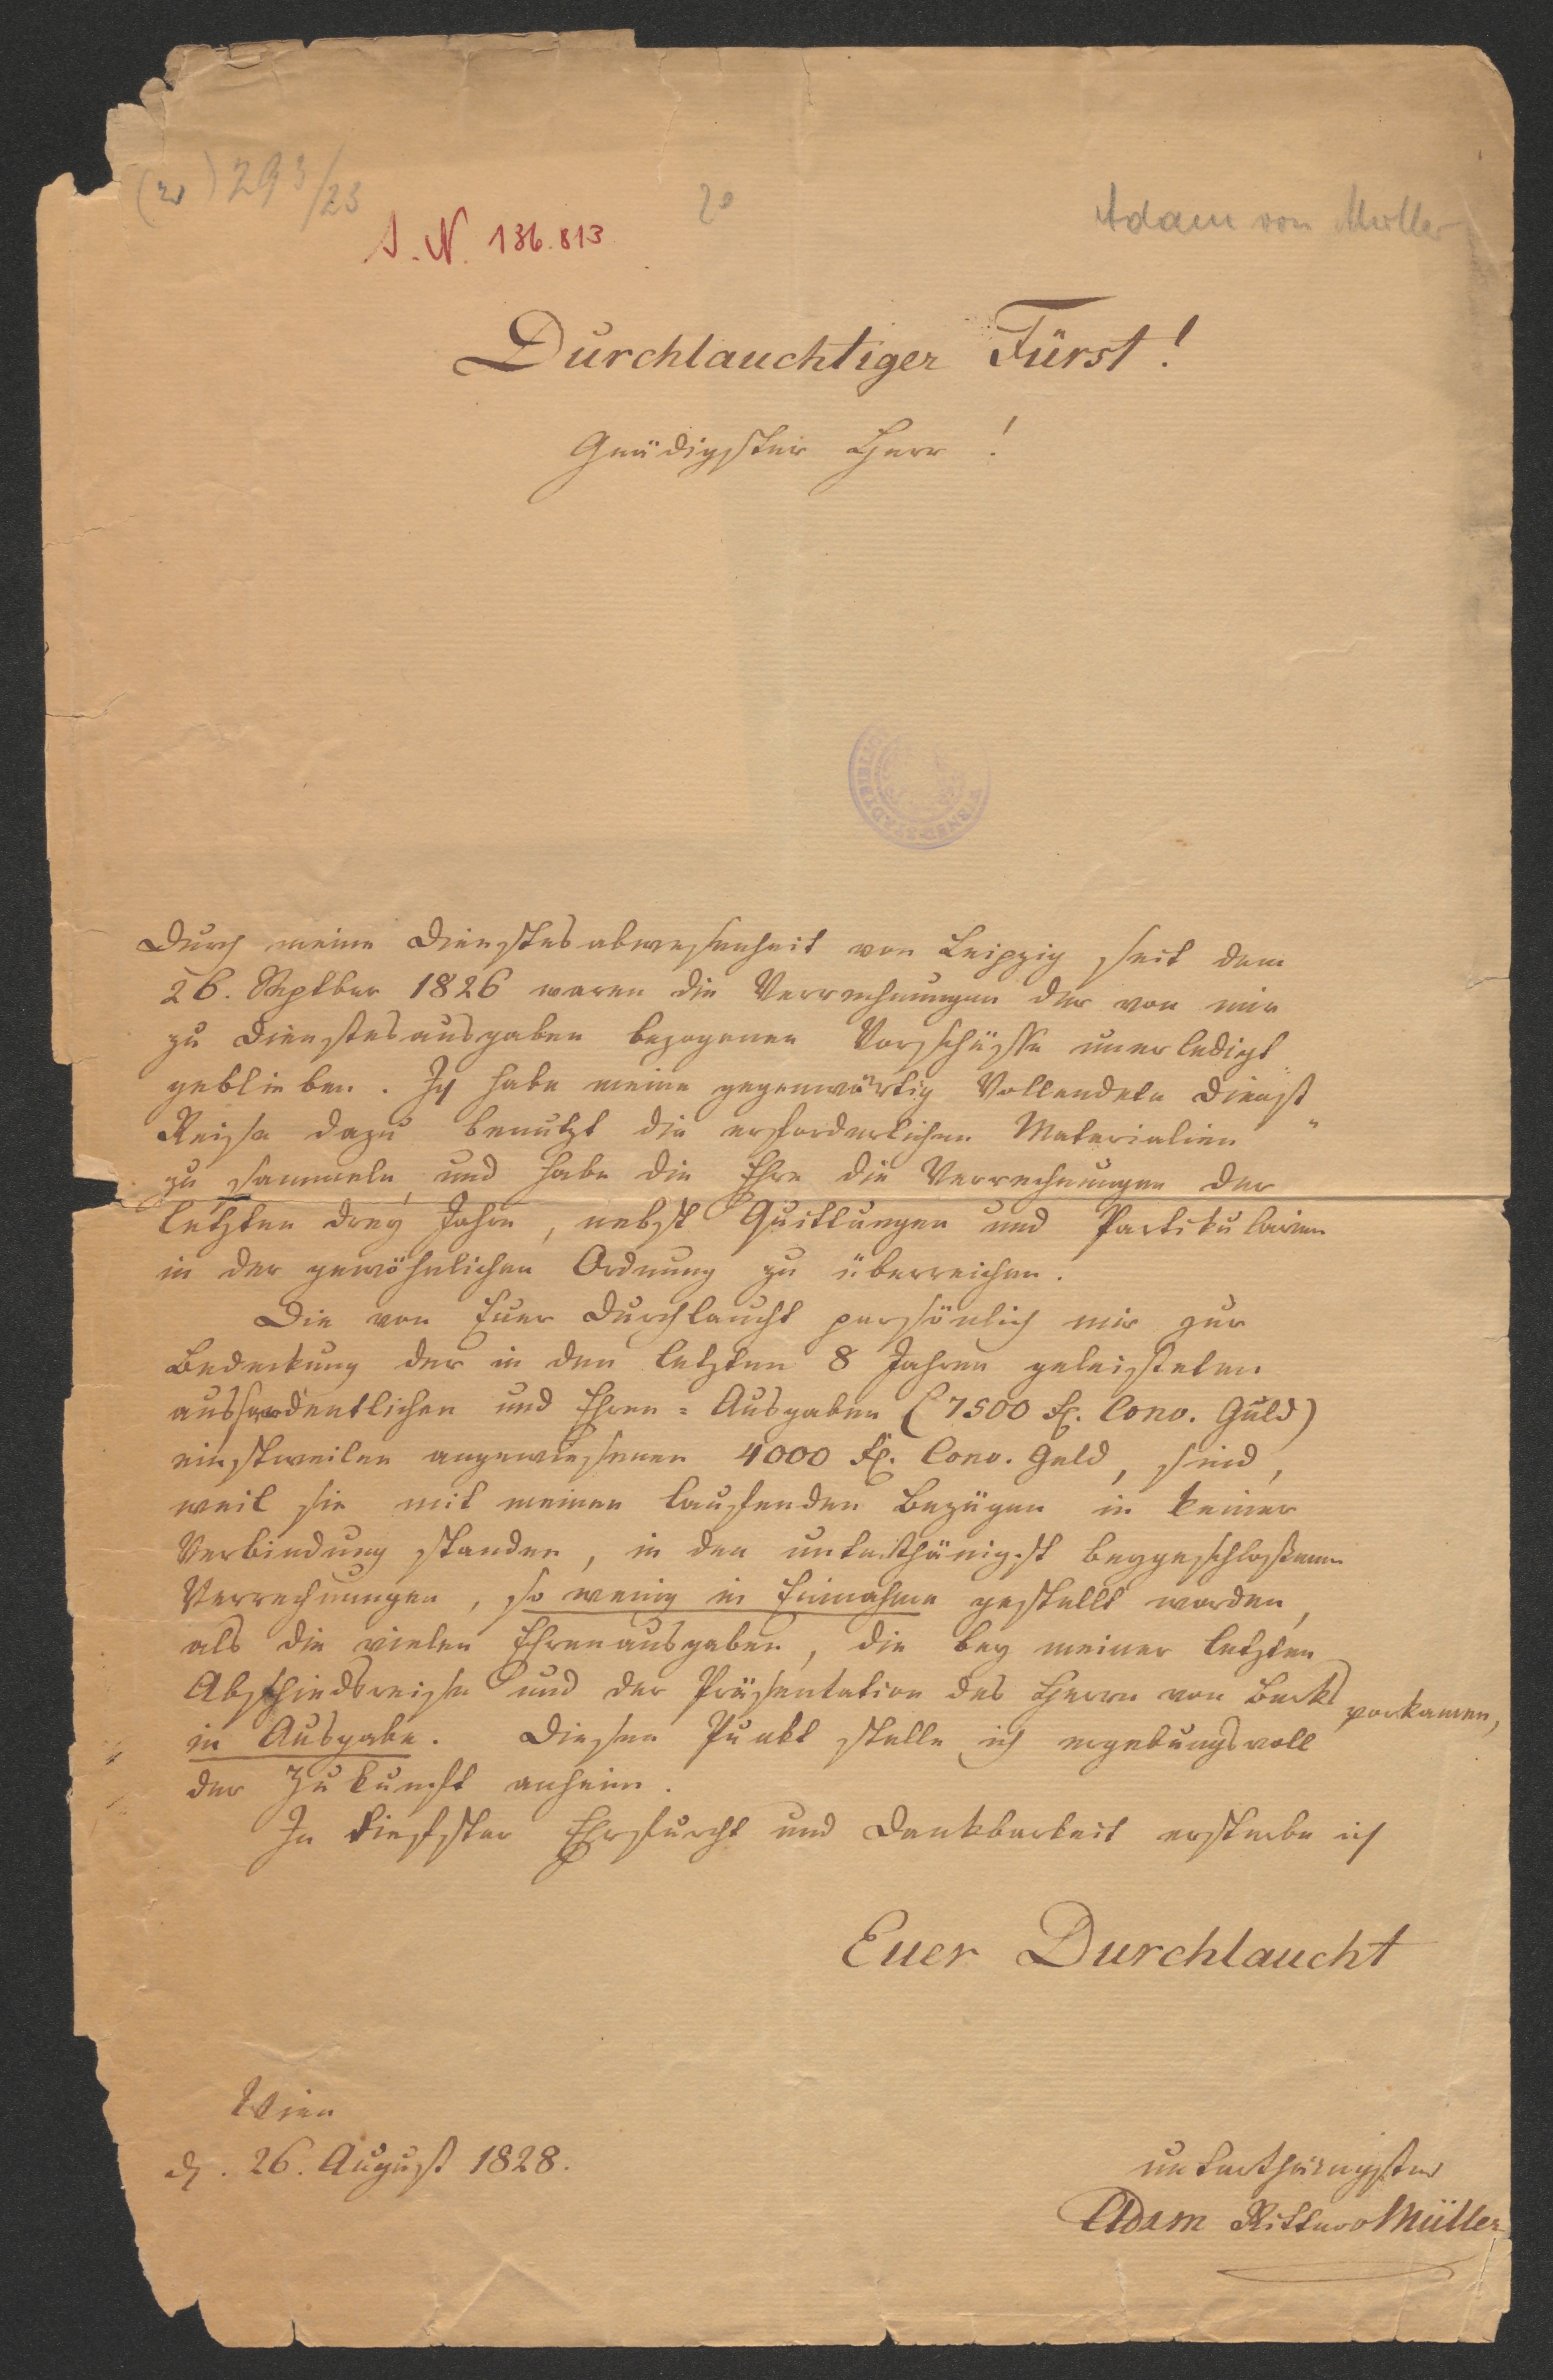 293/23
J. N. 136.813
20
Adam von Müller
Durchlauchtiger Fürst!
Gnädigster Herr!
Durch meine Dienstesabwesenheit von Leipzig seit dem
26. Septber 1826 waren die Verrechnungen der von mir
zu Dienstesausgaben bezogenen Vorschüsse unerledigt
geblieben. Ich habe meine gegenwärtig Vollendete Dienst
Reise dazu benutzt die erforderlichen Materialien
zu sammeln, und habe die Ehre die Verrechnungen der
letzten drey Jahre, nebst Quittungen und Partikularien
in der gewöhnlichen Ordnung zu überreichen.
Die von Euer Durchlaucht persönlich mir zur
Bedeckung der in den letzten 8 Jahren geleisteten
ausserordentlichen und Ehren=Ausgaben (7500 Fl. Conv. Guld)
einstweilen angewiesenen 4000 Fl. Conv. Geld, sind,
weil sie mit meinen laufenden Bezügen in keiner
Verbindung standen, in den unterthänigst beygeschloßenen
Verrechnungen, so wenig in Einnahme gestellt worden,
als die vielen Ehrenausgaben, die bey meiner letzten
Abschiedsreise und der Präsentation des Herrn von Berks vorkamen,
in Ausgabe. Diesen Punkt stelle ich ergebungsvoll
der Zukunft anheim.
In tiefster Ehrfurcht und Dankbarkeit ersterbe ich
Euer Durchlaucht
Wien
d. 26. August 1828.
unterthänigster
Adam Ritter v Müller